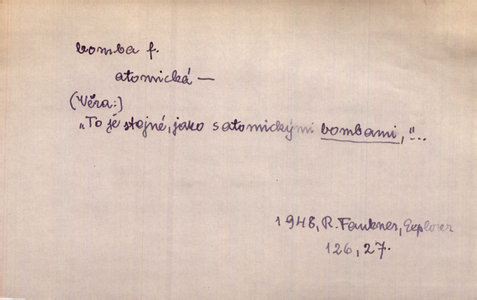 bomba f.
atomická —
(Věra:)
"To je stejné, jako s atomickými bombami,"...
1948, R. Faukner, Explorer
126, 27.